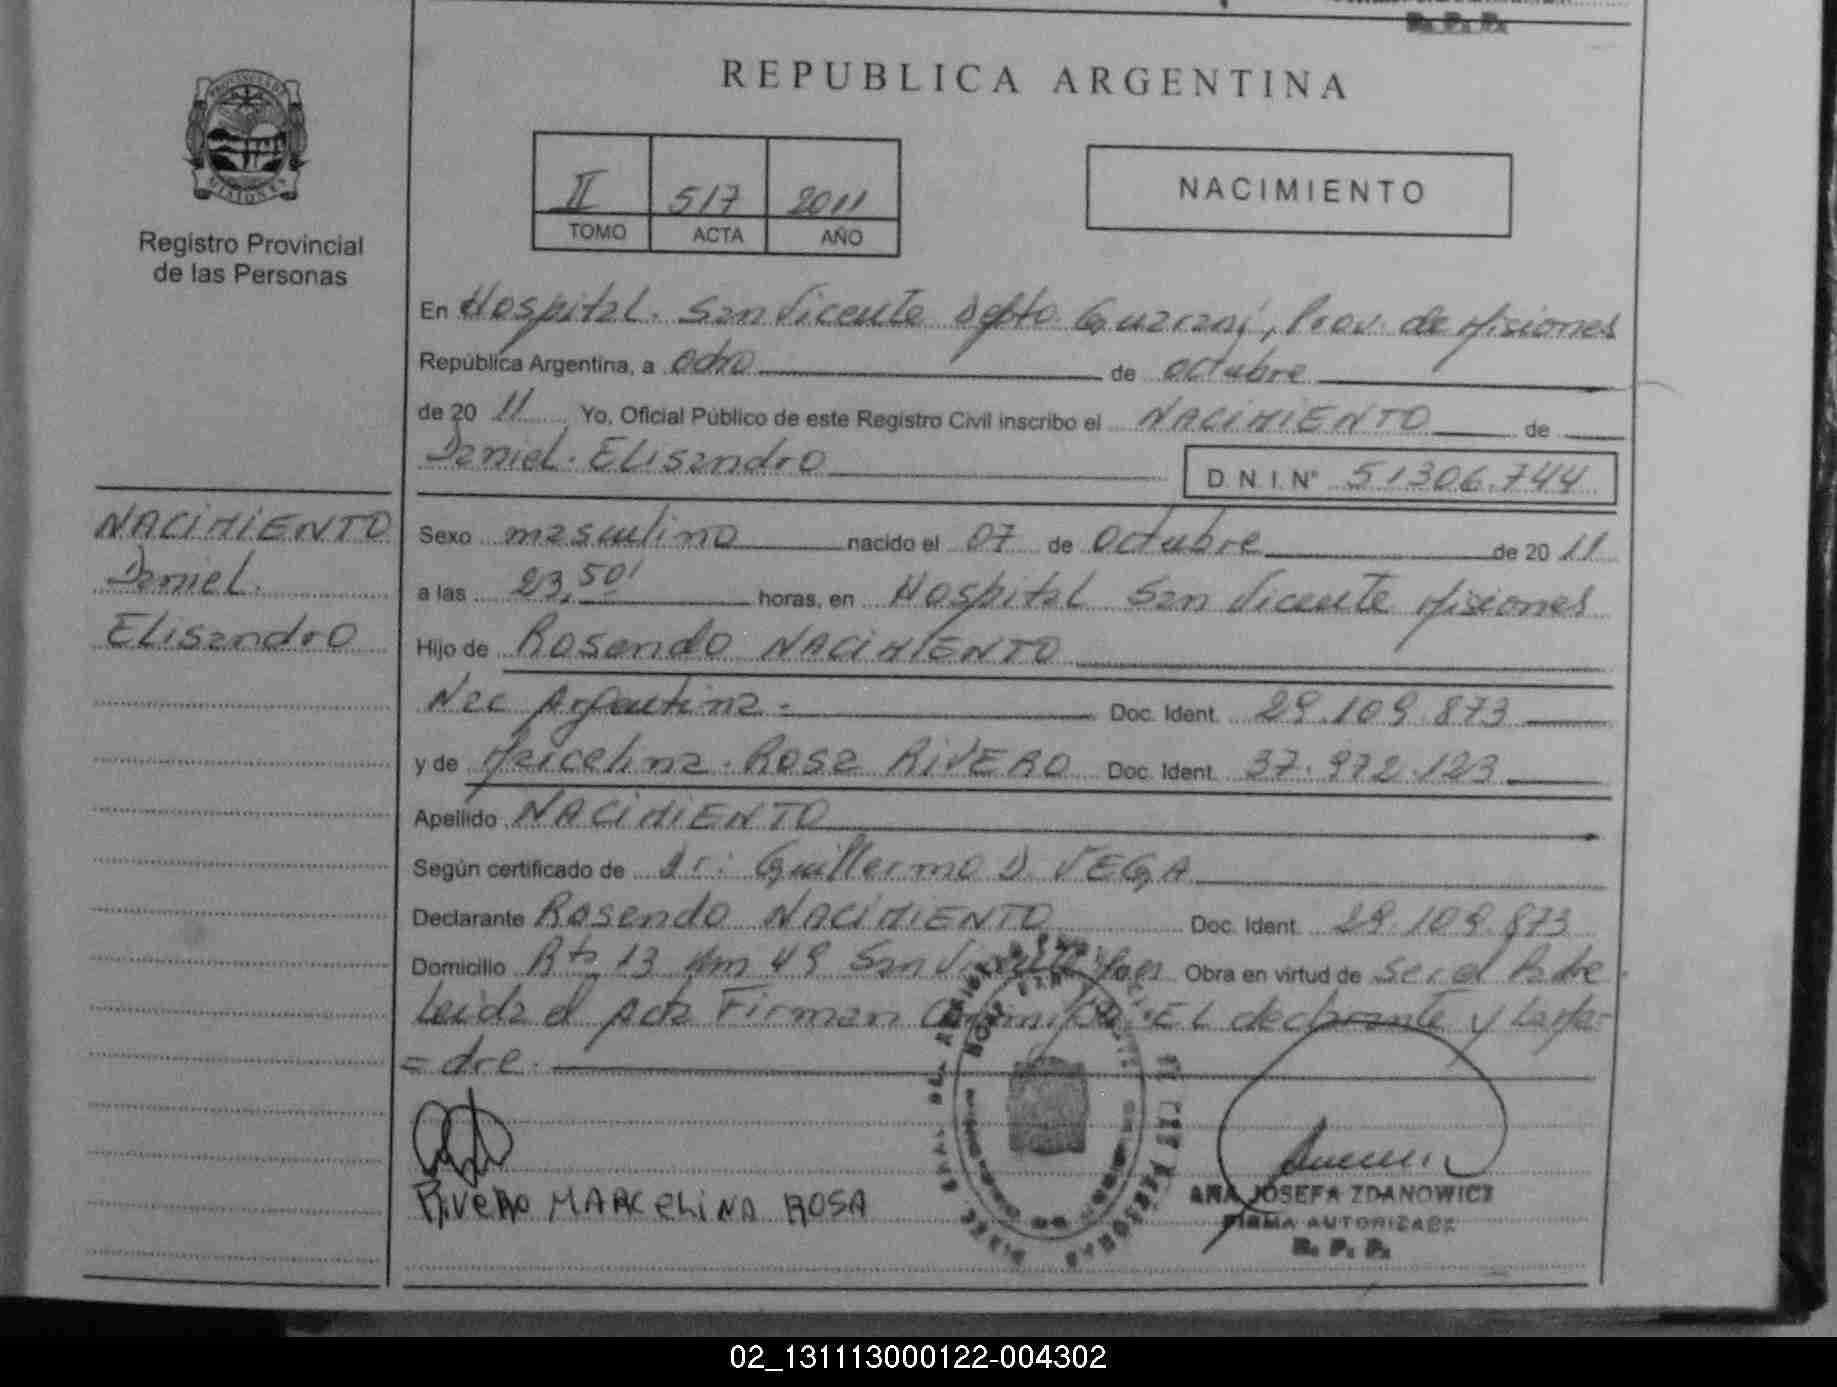 R. P. P.
REPUBLICA ARGENTINA
PROVINCIA DE
MISIONES
Registro Provincial
de las Personas
II 517 2011
TOMO ACTA AÑO
NACIMIENTO
En Hospital. San Vicente Dpto Guaraní, Prov. de Misiones
República Argentina, a ocho de octubre
de 20 11 Yo, Oficial Público de este Registro Civil inscribo el NACIMIENTO de
Daniel. Elisandro D. N. I. N° 51306.744
NACIMIENTO
Daniel.
Elisandro
Sexo masculino nacido el 07 de octubre de 20 11
a las 23,50' horas, en Hospital San Vicente Misiones
Hijo de Rosendo NACIMIENTO
Nac Argentina - Doc. Ident. 29.109.873
y de Marcelina. Rosa RIVERO Doc. Ident. 37.972.123
Apellido NACIMIENTO
Según certificado de Dr: Guillermo D. VEGA
Declarante Rosendo NACIMIENTO Doc. Ident. 29.109.873
Domicilio Rta 13 Km 49 San Vicente Obra en virtud de ser el Padre
Leida el Acta Firman Conmigo EL declarante y La Ma-
= dre.
RIVERO MARCELINA ROSA
ANA JOSEFA ZDANOWICZ
FIRMA AUTORIZADA
R. P. P.
02_131113000122-004302